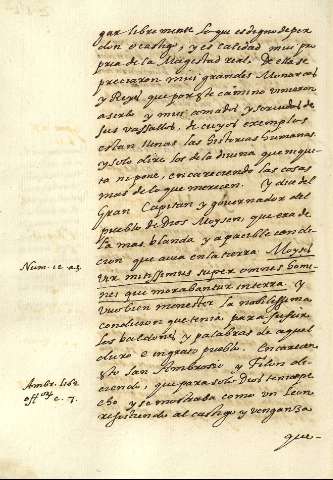 gar libremente lo que es digno de per
don o castigo, y es calidad mui pro
prea de la Magestad real. De ella se
preciaron mui grandes Monarcas
y Reyes, que por este camino vinieron
a serlo y mui amados y servidos de
sus vassallos, de cuyos exemplos
estan llenas las historias humanas
y solo dire los de la divina que ni qui
ta ni pone, encareciendo las cosas
mas de lo que merecen. Y dice del
Gran Capitan y governador del
pueblo de Dios Moysen, que era de
la mas blanda y apacible condi
cion que avia en la tierra Moyses
vir mitissimus super omnes homi
nes qui morabantur in terra. Y
vuo bien menester la nobilissima
condicion que tenia para sufrir
los baldones y palabras de aquel
duro e ingrato pueblo. Encarecen
lo san Ambrosio y Filon di
ciendo, que para solo Dios tenia pe
cho y se mostrava como un leon
resistiendo al castigo y venganza
que-
Num. 12. a 3
Ambr. lib. 2
off. c. 7.